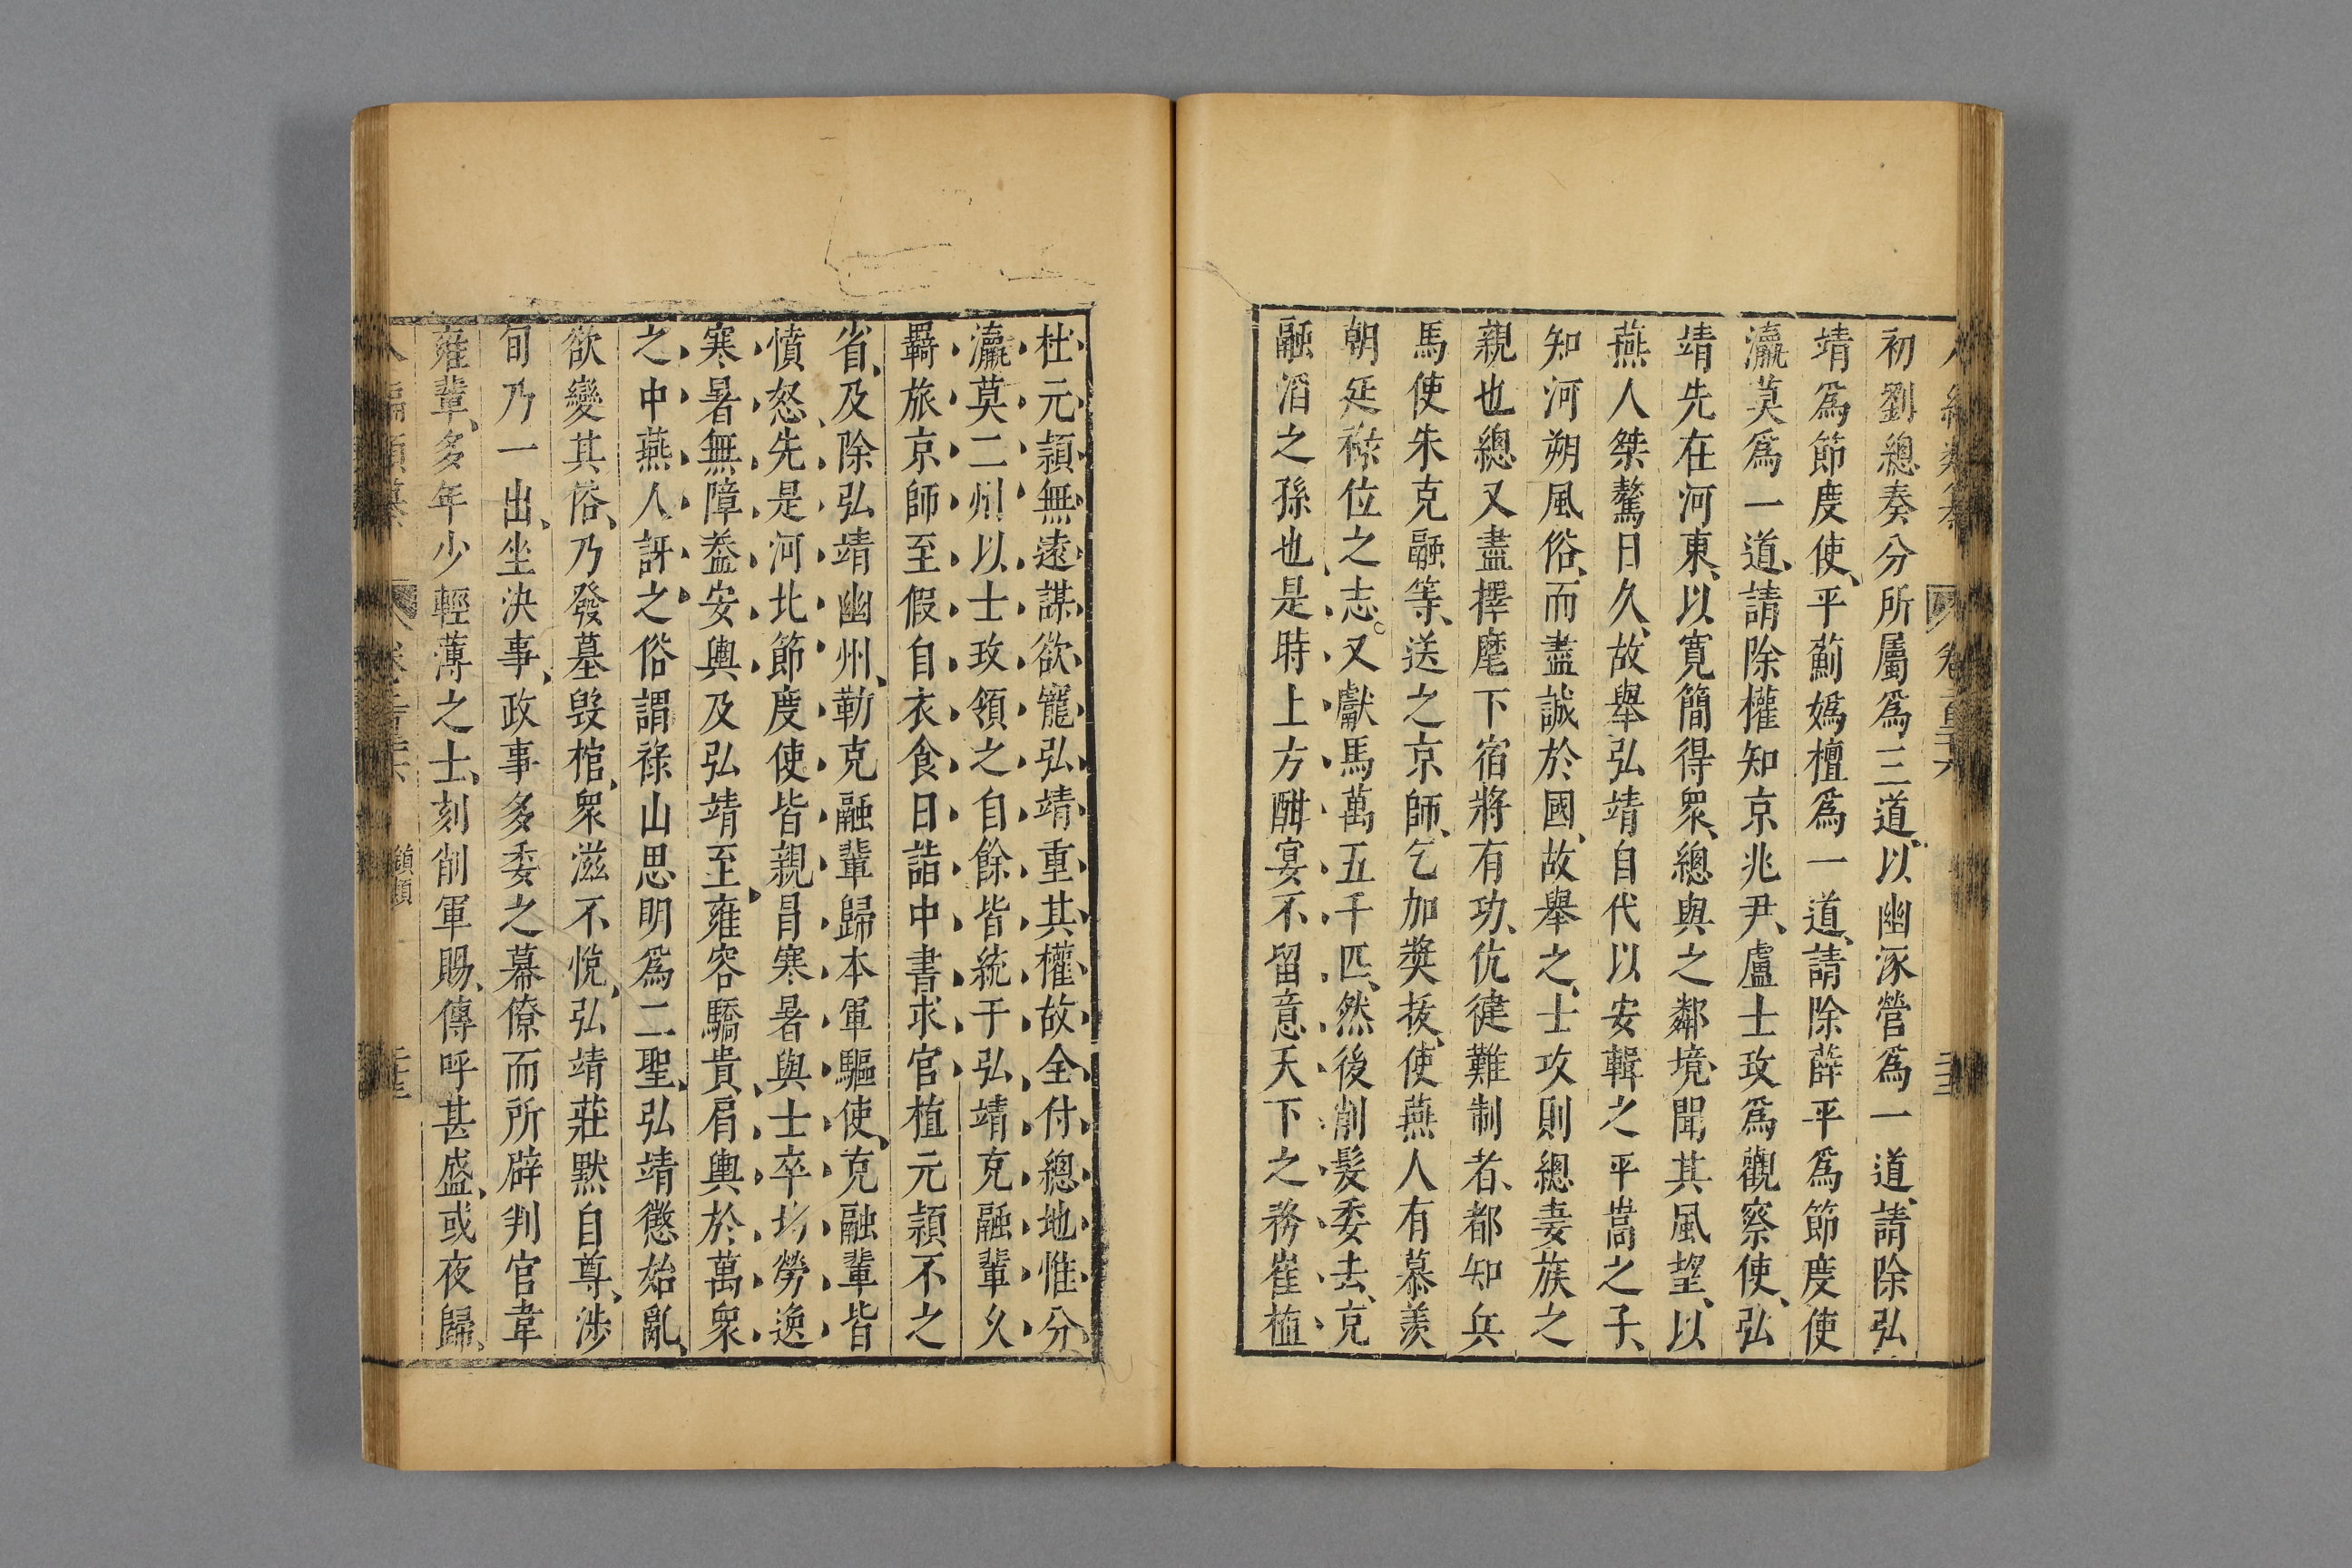 初劉總奏分所屬爲三道、以幽涿營爲一道、請除弘
靖爲節度使、平薊嬀檀爲一道、請除薛平爲節度使
瀛莫爲一道、請除權知京兆尹、盧士玫爲觀察使、弘
靖先在河東、以寬簡得衆、總與之鄰境、聞其風望、以
燕人桀驁日久、故舉弘靖自代以安輯之平嵩之子、
知河朔風俗、而盡誠於國、故舉之、士玫則總妻族之
親也總又盡擇麾下宿將有功、伉健難制者、都知兵
馬使朱克融等、送之京師、乞加奬拔、使燕人有慕羨
朝廷祿位之志。又獻馬萬五千匹、然後削髮委去、克
融滔之孫也、是時上方酣宴不留意天下之務崔植
杜元頴無遠謀欲寵弘靖重其權故全付總地惟分
瀛莫二州以士玫領之自餘皆統于弘靖克融輩久
羇旅京師至假自衣食日詣中書求官植元頴不之
省、及除弘靖幽州、勒克融輩歸本軍驅使、克融輩皆
憤怒、先是河北節度使皆親冐寒暑與士卒均勞逸
寒暑無障葢安輿及弘靖至、雍容驕貴、肩輿於萬衆
之中燕人訝之俗謂祿山思明爲二聖、弘靖懲始亂、
欲變其俗、乃發墓毁棺、衆滋不悅、弘靖莊默自尊、涉
旬乃一出、坐決事、政事多委之幕僚而所辟判官韋
雍輩、多年少輕薄之士、刻削軍賜、傳呼甚盛、或夜歸、